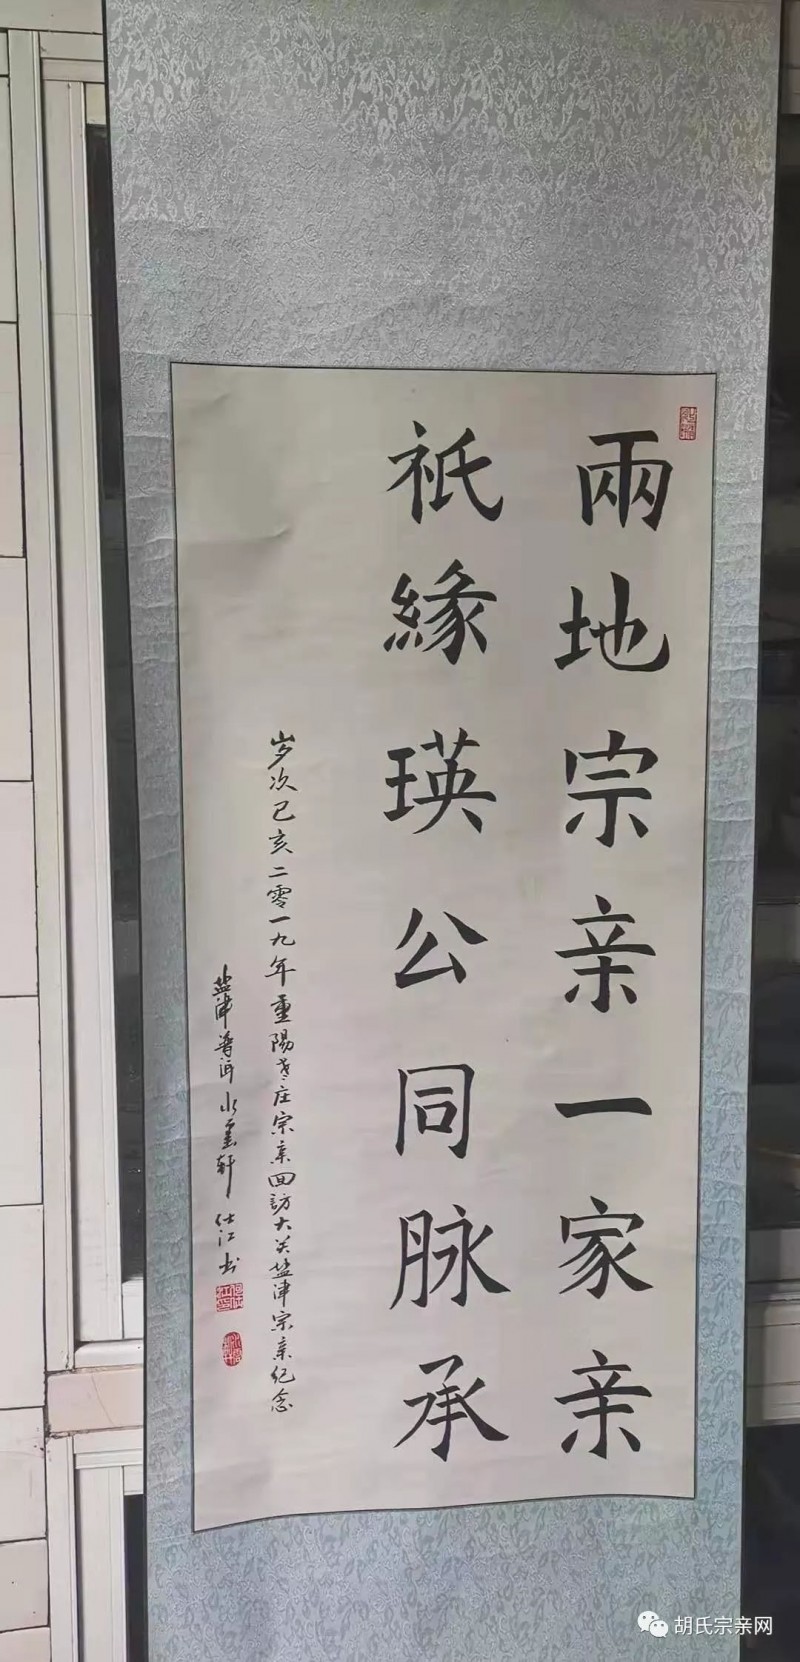 兩地宗亲一家亲
祇緣瑛公同脉承
岁次己亥二零一九年重陽老庄宗亲回訪大关盐津宗亲纪念
盐津普洱水云轩仕江书
胡氏宗亲网